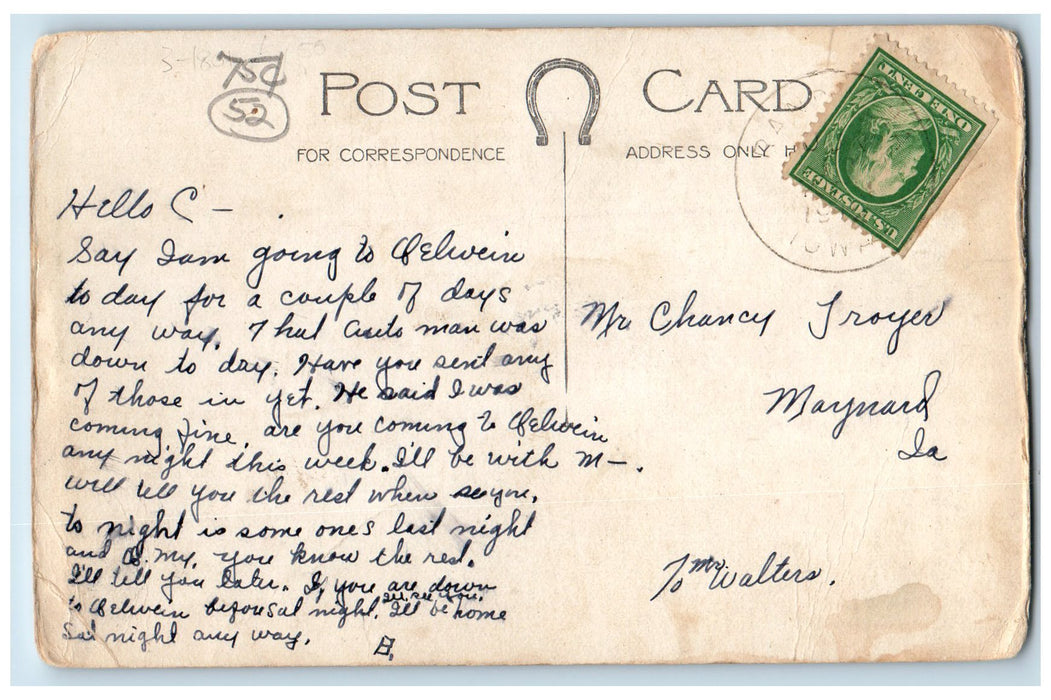 75¢
52
POST CARD
FOR CORRESPONDENCE
ADDRESS ONLY H
ONE CENT
U.S. POSTAGE
19
IOWA
Hello C —
Say I am going to Oelwein
to day for a couple of days
any way. That Auto man was
down to day. Have you sent any
of those in yet. He said I was
coming fine, are you coming to Oelwein
any night this week. I'll be with M—.
will tell you the rest when see you.
to night is some ones last night
and O. My, you know the rest.
I'll tell you later. If you are down
to Oelwein before Sat night, I'll see you. I'll be home
Sat night any way.
B.
Mr Chancy Troyer
Maynard
Ia
To Mr Walters.